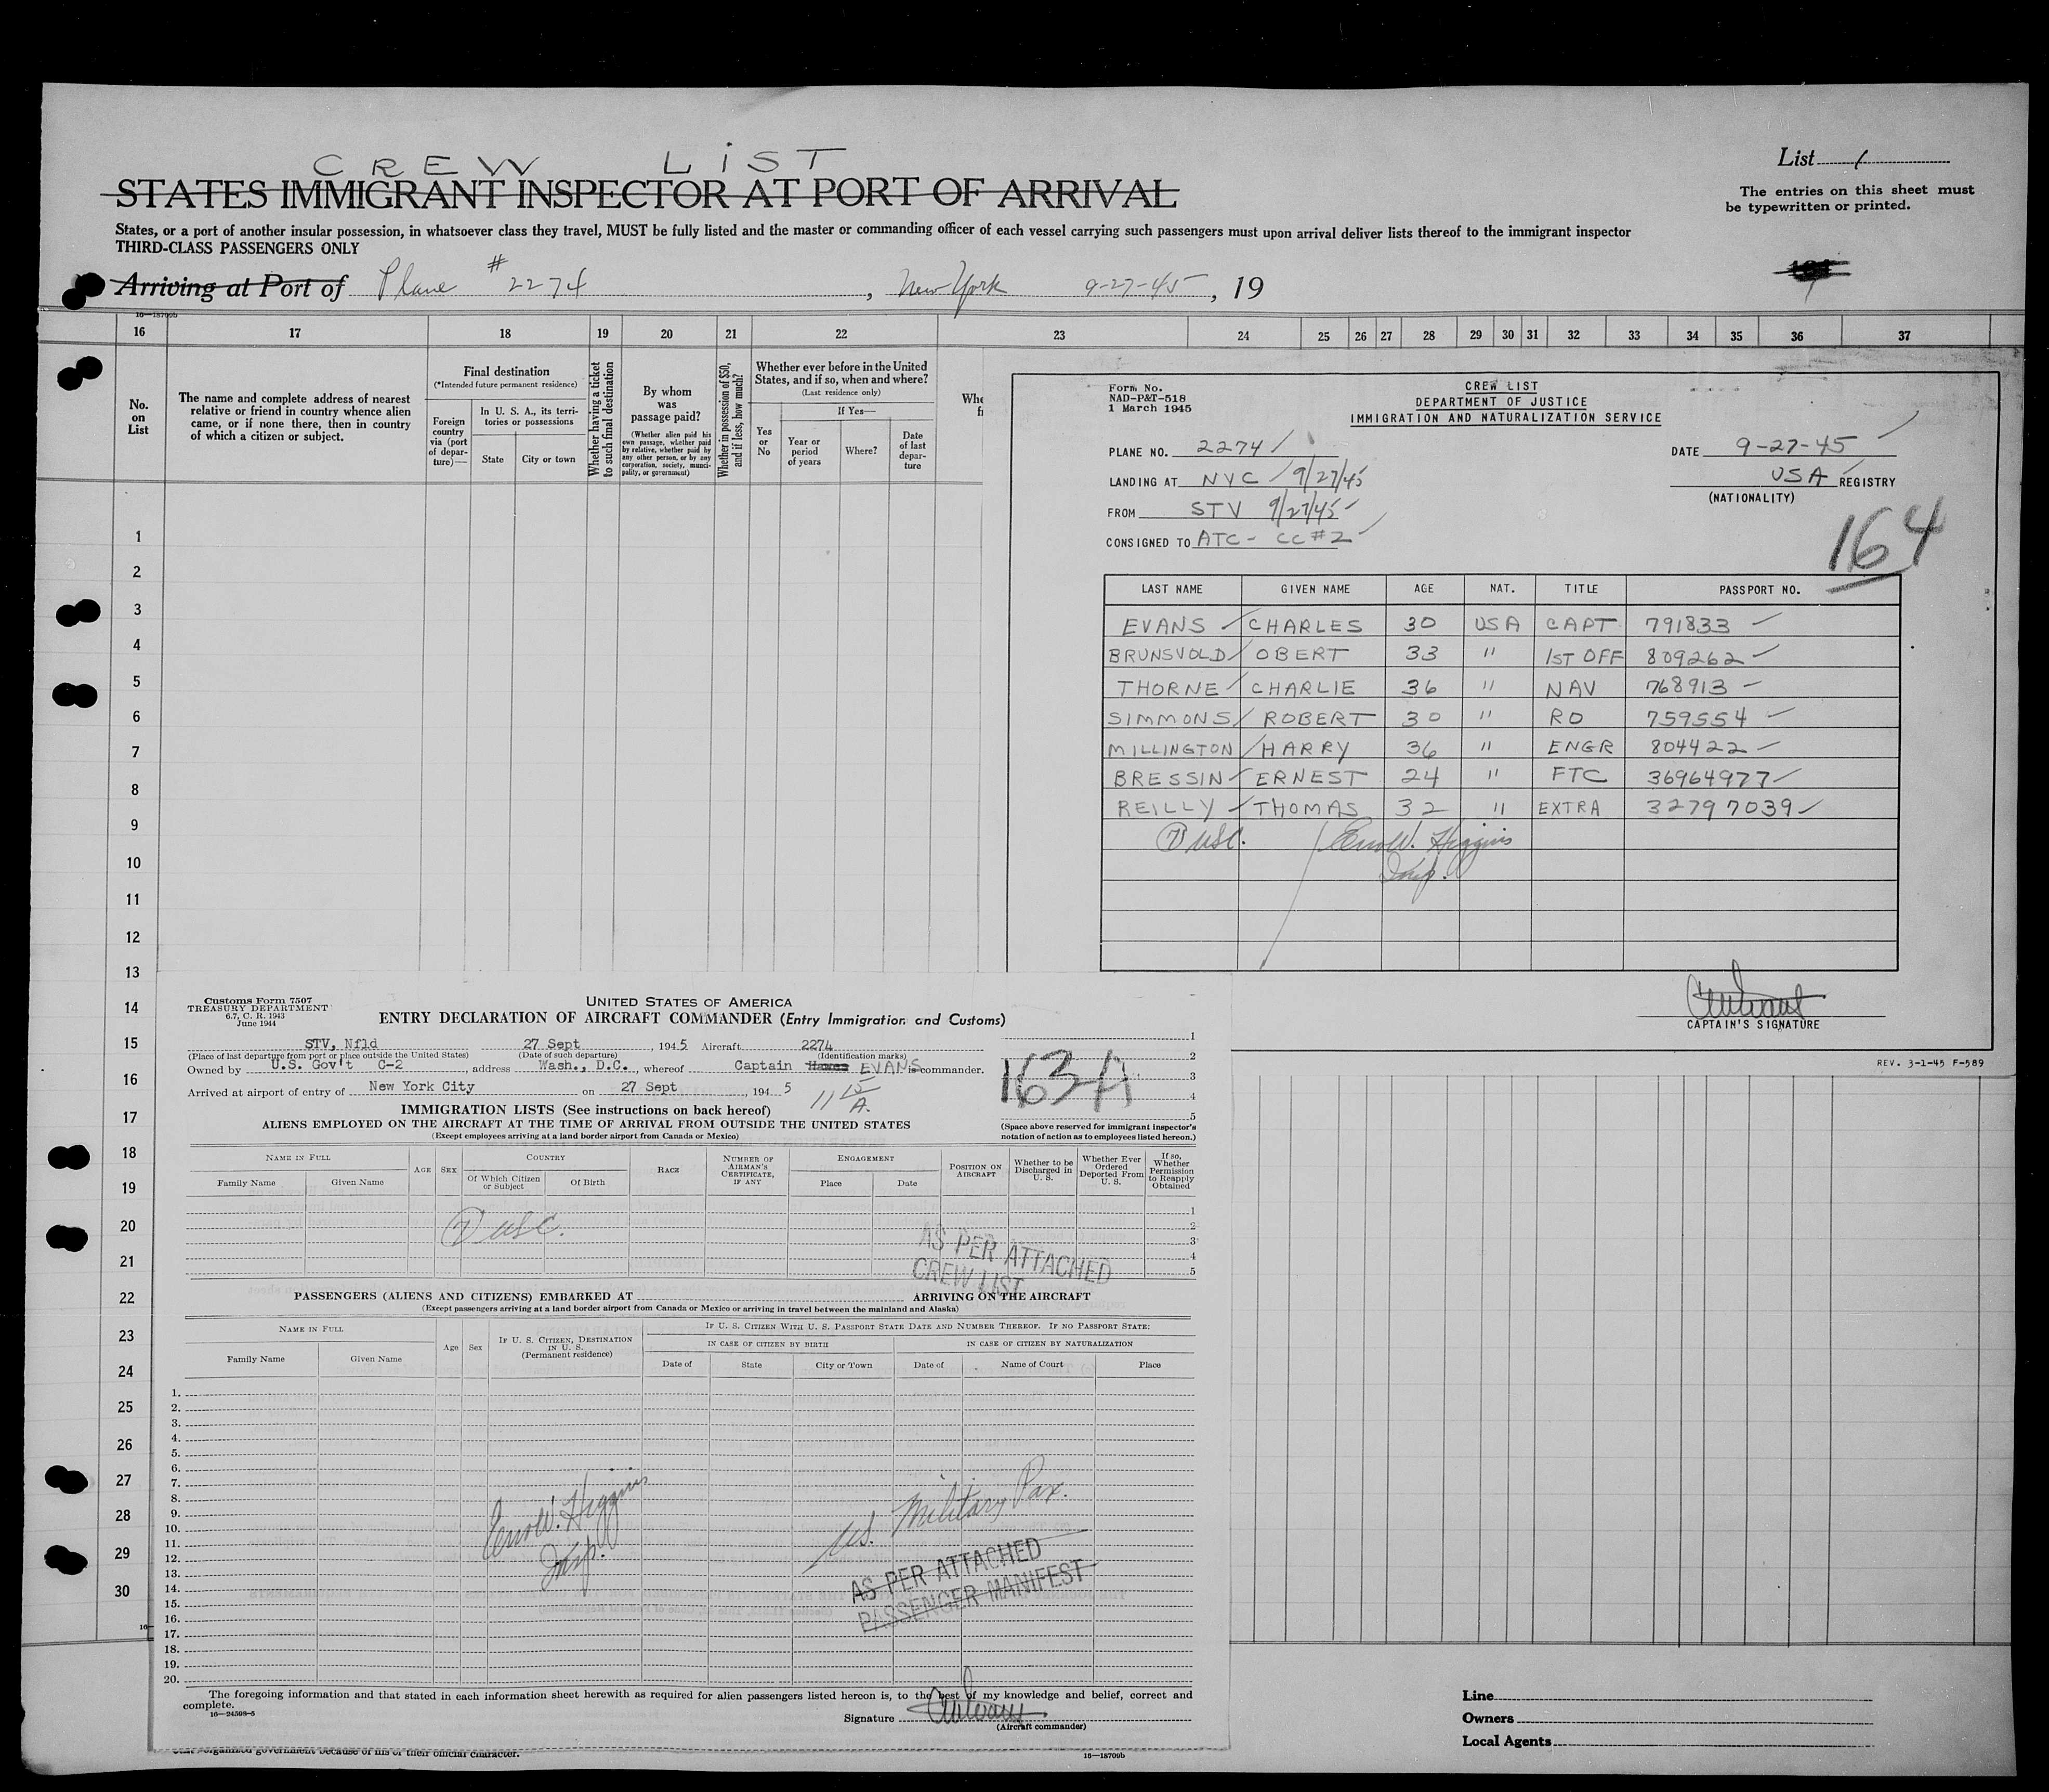 CREW LIST
STATES IMMIGRANT INSPECTOR AT PORT OF ARRIVAL
States, or a port of another insular possession, in whatsoever class they travel, MUST be fully listed and the master or commanding officer of each vessel carrying such passengers must upon arrival deliver lists thereof to the immigrant inspector
THIRD-CLASS PASSENGERS ONLY
Arriving at Port of Plane # 2274, New York 9-27-45, 19
List 1
The entries on this sheet must
be typewritten or printed.
16—18709b
16 17 18 19 20 21 22 23 24 25 26 27 28 29 30 31 32 33 34 35 36 37
No. on List
The name and complete address of nearest relative or friend in country whence alien came, or if none there, then in country of which a citizen or subject.
Final destination
(*Intended future permanent residence)
Foreign country via (port of departure)—
In U. S. A., its territories or possessions
State
City or town
Whether having a ticket to such final destination
By whom was passage paid?
(Whether alien paid his own passage, whether paid by relative, whether paid by any other person, or by any corporation, society, municipality, or government)
Whether in possession of $50, and if less, how much?
Whether ever before in the United States, and if so, when and where?
(Last residence only)
Yes or No
If Yes—
Year or period of years
Where?
Date of last departure
1
2
3
4
5
6
7
8
9
10
11
12
13
14
15
16
17
18
19
20
21
22
23
24
25
26
27
28
29
30
Form No.
NAD-P&T-518
1 March 1945
CREW LIST
DEPARTMENT OF JUSTICE
IMMIGRATION AND NATURALIZATION SERVICE
PLANE NO. 2274
DATE 9-27-45
LANDING AT NYC 9/27/45
USA REGISTRY
(NATIONALITY)
FROM STV 9/27/45
CONSIGNED TO ATC - CC #2
164
LAST NAME GIVEN NAME AGE NAT. TITLE PASSPORT NO.
EVANS CHARLES 30 USA CAPT 791833
BRUNSVOLD OBERT 33 " 1ST OFF 809262
THORNE CHARLIE 36 " NAV 768913
SIMMONS ROBERT 30 " RO 759554
MILLINGTON HARRY 36 " ENGR 804422
BRESSIN ERNEST 24 " FTC 36964977
REILLY THOMAS 32 " EXTRA 32797039
7 USC. Higgins
Insp.
CAPTAIN'S SIGNATURE
REV. 3-1-45 F-589
Customs Form 7507
TREASURY DEPARTMENT
6.7, C. R. 1943
June 1944
UNITED STATES OF AMERICA
ENTRY DECLARATION OF AIRCRAFT COMMANDER (Entry Immigration and Customs)
STV, Nfld 27 Sept, 1945 Aircraft 2274
(Place of last departure from port or place outside the United States) (Date of such departure) (Identification marks)
Owned by U.S. Gov't C-2, address Wash., D.C., whereof Captain EVANS is commander.
Arrived at airport of entry of New York City on 27 Sept, 1945
11 15 A.
163-A
1
2
3
4
5
(Space above reserved for immigrant inspector's notation of action as to employees listed hereon.)
IMMIGRATION LISTS (See instructions on back hereof)
ALIENS EMPLOYED ON THE AIRCRAFT AT THE TIME OF ARRIVAL FROM OUTSIDE THE UNITED STATES
(Except employees arriving at a land border airport from Canada or Mexico)
NAME IN FULL
Family Name
Given Name
AGE
SEX
COUNTRY
Of Which Citizen or Subject
Of Birth
RACE
NUMBER OF AIRMAN'S CERTIFICATE, IF ANY
ENGAGEMENT
Place
Date
POSITION ON AIRCRAFT
Whether to be Discharged in U. S.
Whether Ever Ordered Deported From U. S.
If so, Whether Permission to Reapply Obtained
1
2
3
4
5
7 USC.
AS PER ATTACHED
CREW LIST
PASSENGERS (ALIENS AND CITIZENS) EMBARKED AT ARRIVING ON THE AIRCRAFT
(Except passengers arriving at a land border airport from Canada or Mexico or arriving in travel between the mainland and Alaska)
NAME IN FULL
Family Name
Given Name
Age
Sex
IF U. S. CITIZEN, DESTINATION IN U. S.
(Permanent residence)
IF U. S. CITIZEN WITH U. S. PASSPORT STATE DATE AND NUMBER THEREOF. IF NO PASSPORT STATE:
IN CASE OF CITIZEN BY BIRTH
IN CASE OF CITIZEN BY NATURALIZATION
Date of
State
City or Town
Date of
Name of Court
Place
1.
2.
3.
4.
5.
6.
7.
8.
9.
10.
11.
12.
13.
14.
15.
16.
17.
18.
19.
20.
Higgins
Insp.
US. Military Pax.
AS PER ATTACHED
PASSENGER MANIFEST
The foregoing information and that stated in each information sheet herewith as required for alien passengers listed hereon is, to the best of my knowledge and belief, correct and
complete.
16—24598-5
Signature
(Aircraft commander)
organized government because of his or their official character.
16—18709b
Line
Owners
Local Agents